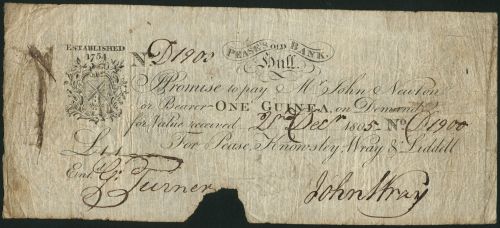 ESTABLISHED
1754
PEASE'S OLD BANK,
Hull
No. D1900
I Promise to pay Mr. John Newton
or Bearer ONE GUINEA, on Demand
for Value received Decr 1805. No. D1900
For Pease, Knowsley, Wray & Liddell
Entd. G. Turner
John Wray